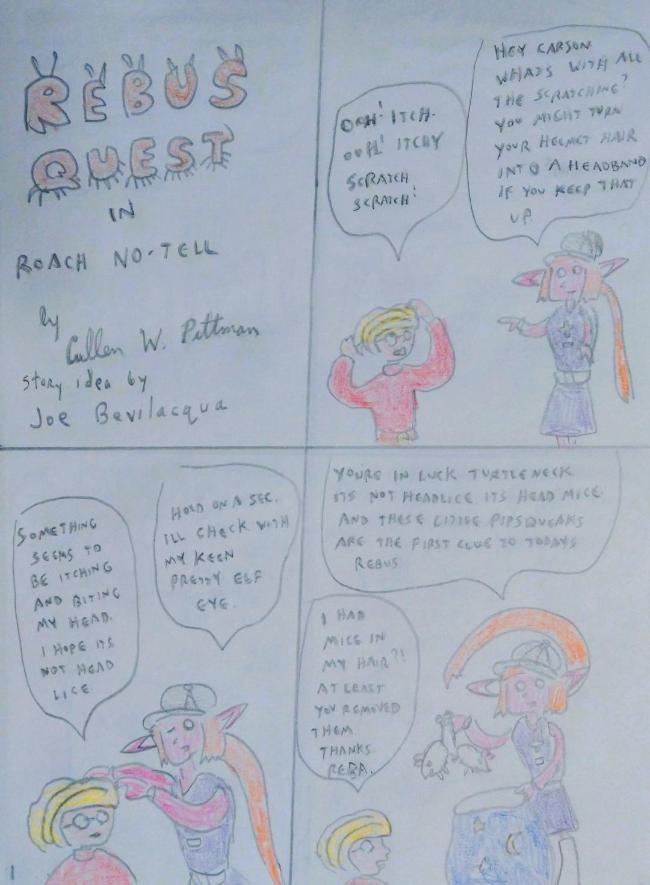 REBUS
QUEST
IN
ROACH NO-TELL
by
Cullen W. Pittman
story idea by
Joe Bevilacqua
OOH! ITCH.
OOH! ITCHY
SCRATCH
SCRATCH!
HEY CARSON
WHATS WITH ALL
THE SCRATCHING?
YOU MIGHT TURN
YOUR HELMET HAIR
INTO A HEADBAND
IF YOU KEEP THAT
UP.
SOMETHING
SEEMS TO
BE ITCHING
AND BITING
MY HEAD.
I HOPE ITS
NOT HEAD
LICE.
HOLD ON A SEC.
ILL CHECK WITH
MY KEEN
PRETTY ELF
EYE.
YOU'RE IN LUCK TURTLENECK
ITS NOT HEADLICE ITS HEAD MICE
AND THESE LITTLE PIPSQUEAKS
ARE THE FIRST CLUE TO TODAYS
REBUS
I HAD
MICE IN
MY HAIR?!
AT LEAST
YOU REMOVED
THEM.
THANKS
REBA.
1